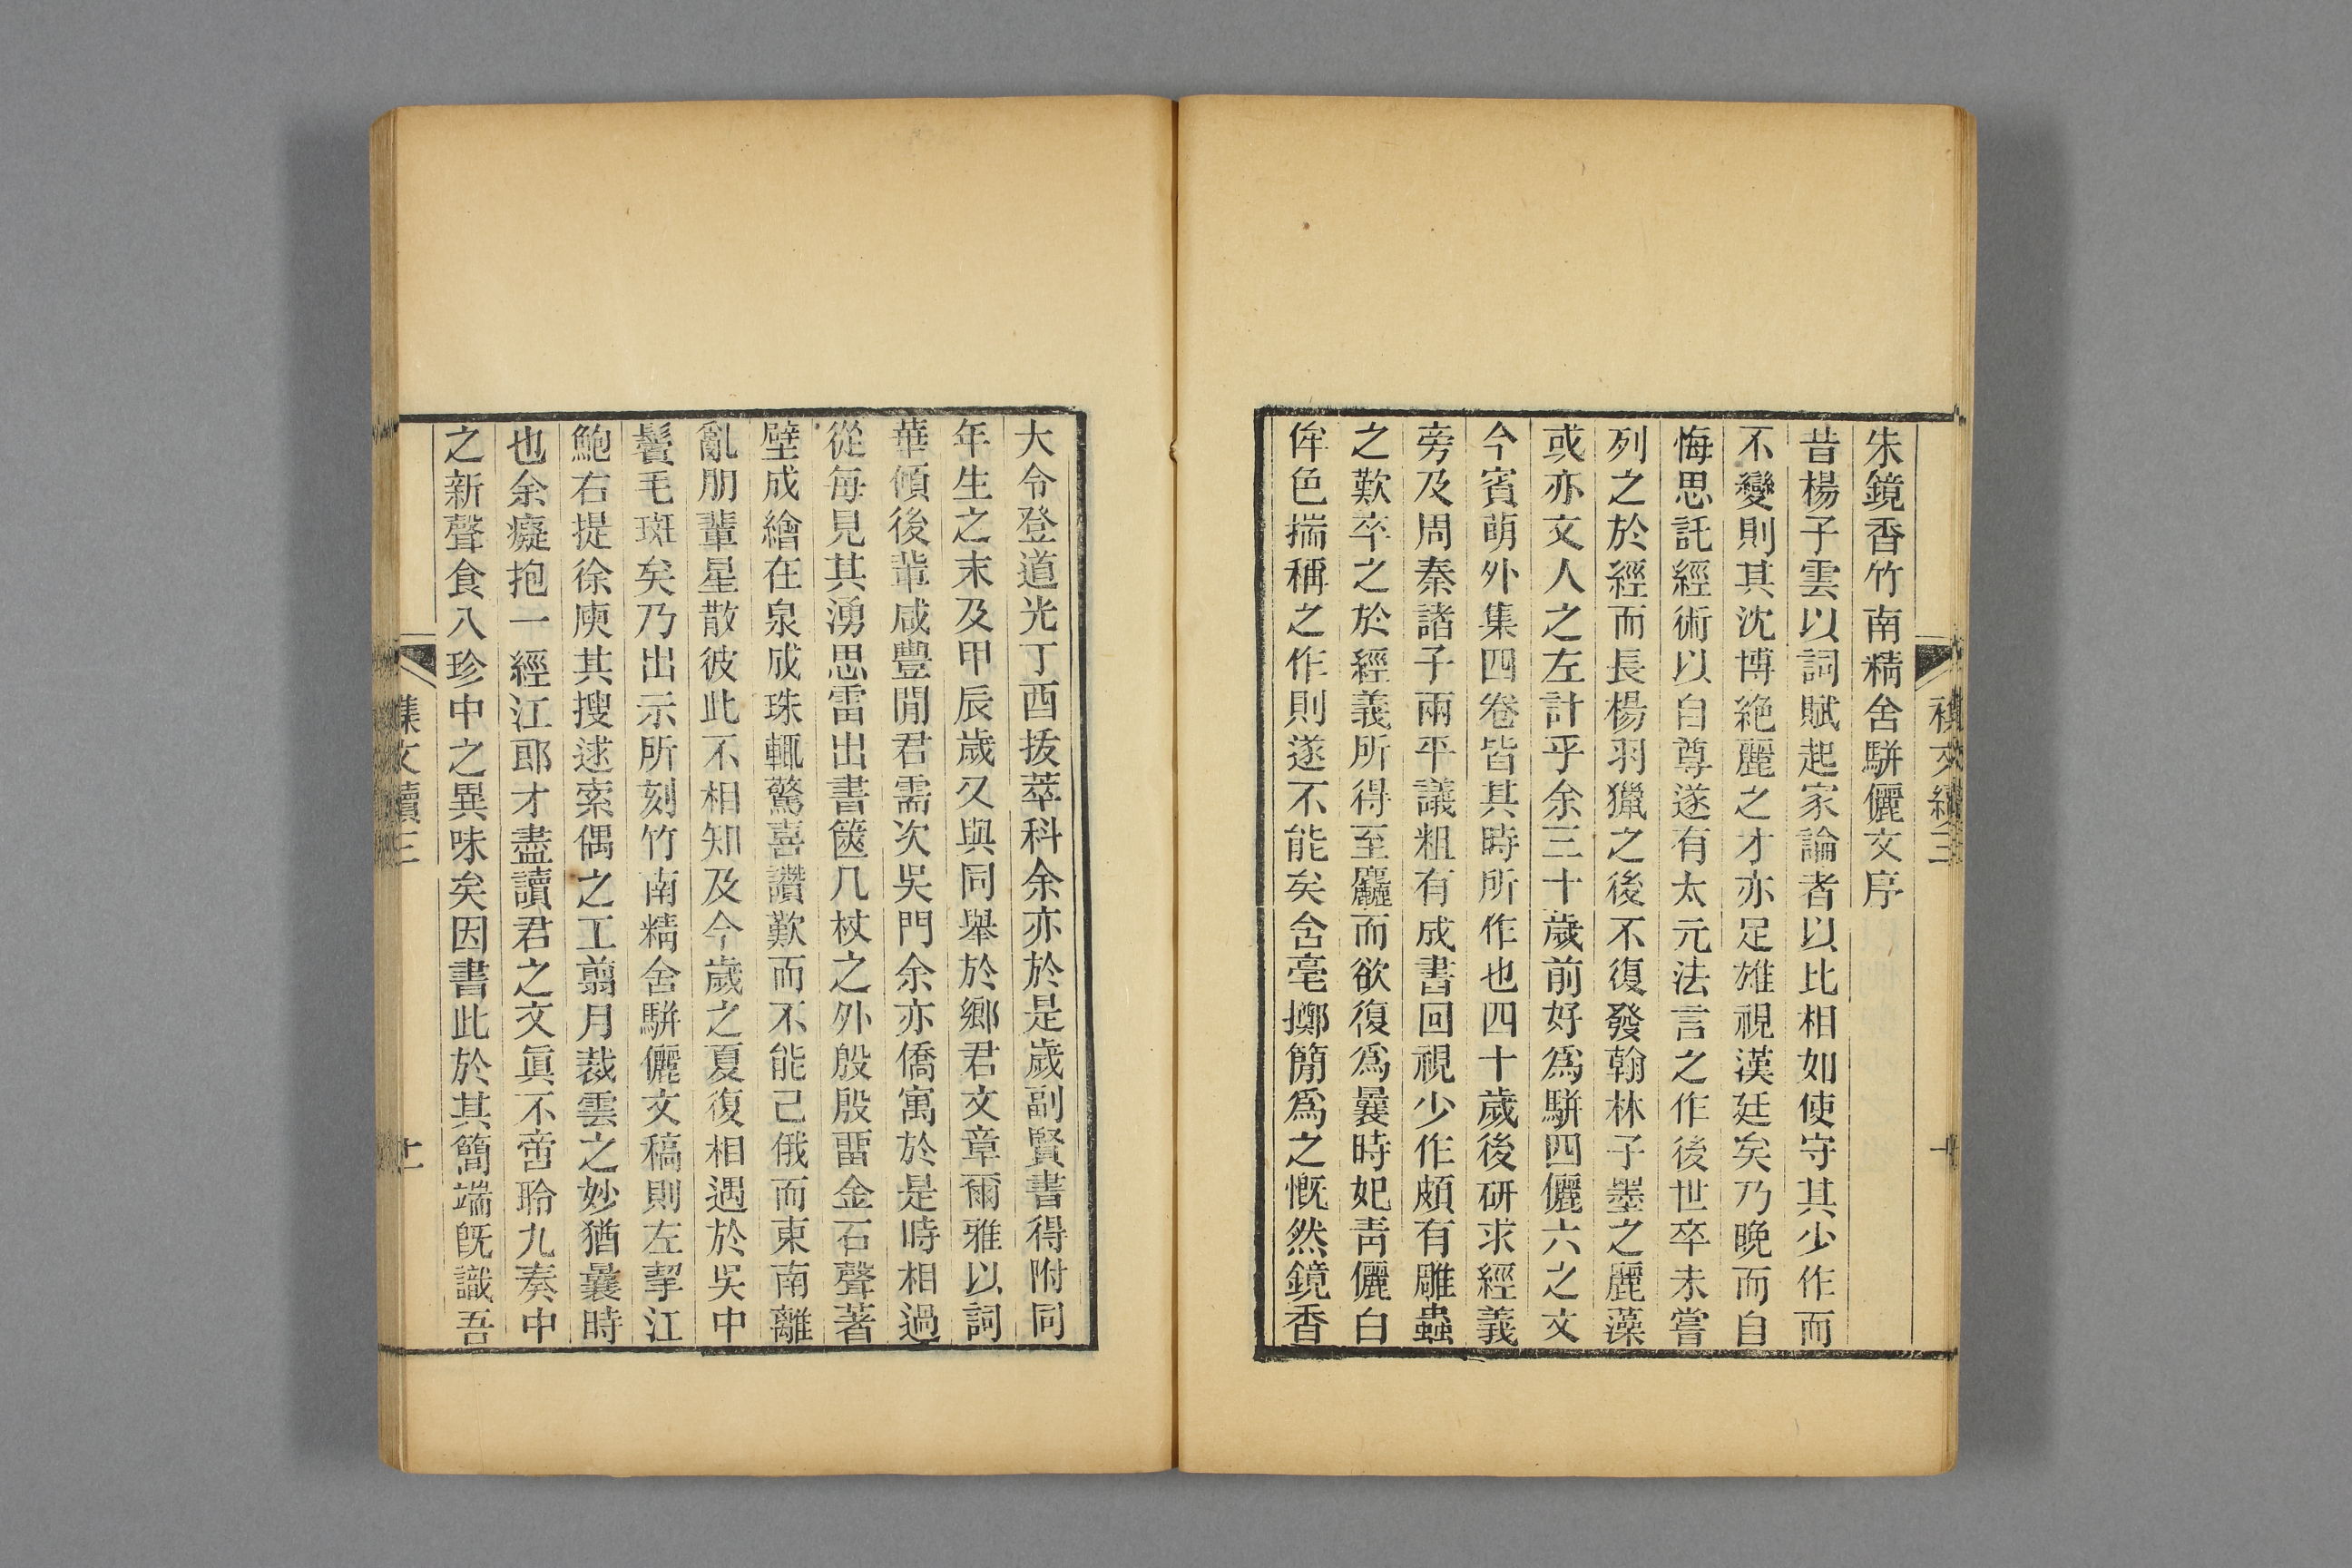 朱鏡香竹南精舍駢儷文序
昔楊子雲以詞賦起家論者以比相如使守其少作而
不變則其沈博絶麗之才亦足雄視漢廷矣乃晚而自
悔思託經術以自尊遂有太元法言之作後世卒未嘗
列之於經而長楊羽獵之後不復發翰林子墨之麗藻
或亦文人之左計乎余三十歲前好爲駢四儷六之文
今賓萌外集四卷皆其時所作也四十歲後研求經義
旁及周秦諸子兩平議粗有成書回視少作頗有雕蟲
之歎卒之於經義所得至麤而欲復爲曩時妃靑儷白
侔色揣稱之作則遂不能矣含毫擲簡爲之慨然鏡香
大令登道光丁酉拔萃科余亦於是歲副賢書得附同
年生之末及甲辰歲又與同舉於鄉君文章爾雅以詞
華傾後輩咸豐閒君需次吳門余亦僑寓於是時相過
從每見其湧思雷出書篋几杖之外殷殷畱金石聲著
壁成繪在泉成珠輒驚喜讚歎而不能已俄而東南離
亂朋輩星散彼此不相知及今歲之夏復相遇於吳中
鬢毛斑矣乃出示所刻竹南精舍駢儷文稿則左挈江
鮑右提徐庾其搜逑索偶之工翦月裁雲之妙猶曩時
也余癡抱一經江郎才盡讀君之文眞不啻聆九奏中
之新聲食八珍中之異味矣因書此於其簡端旣識吾